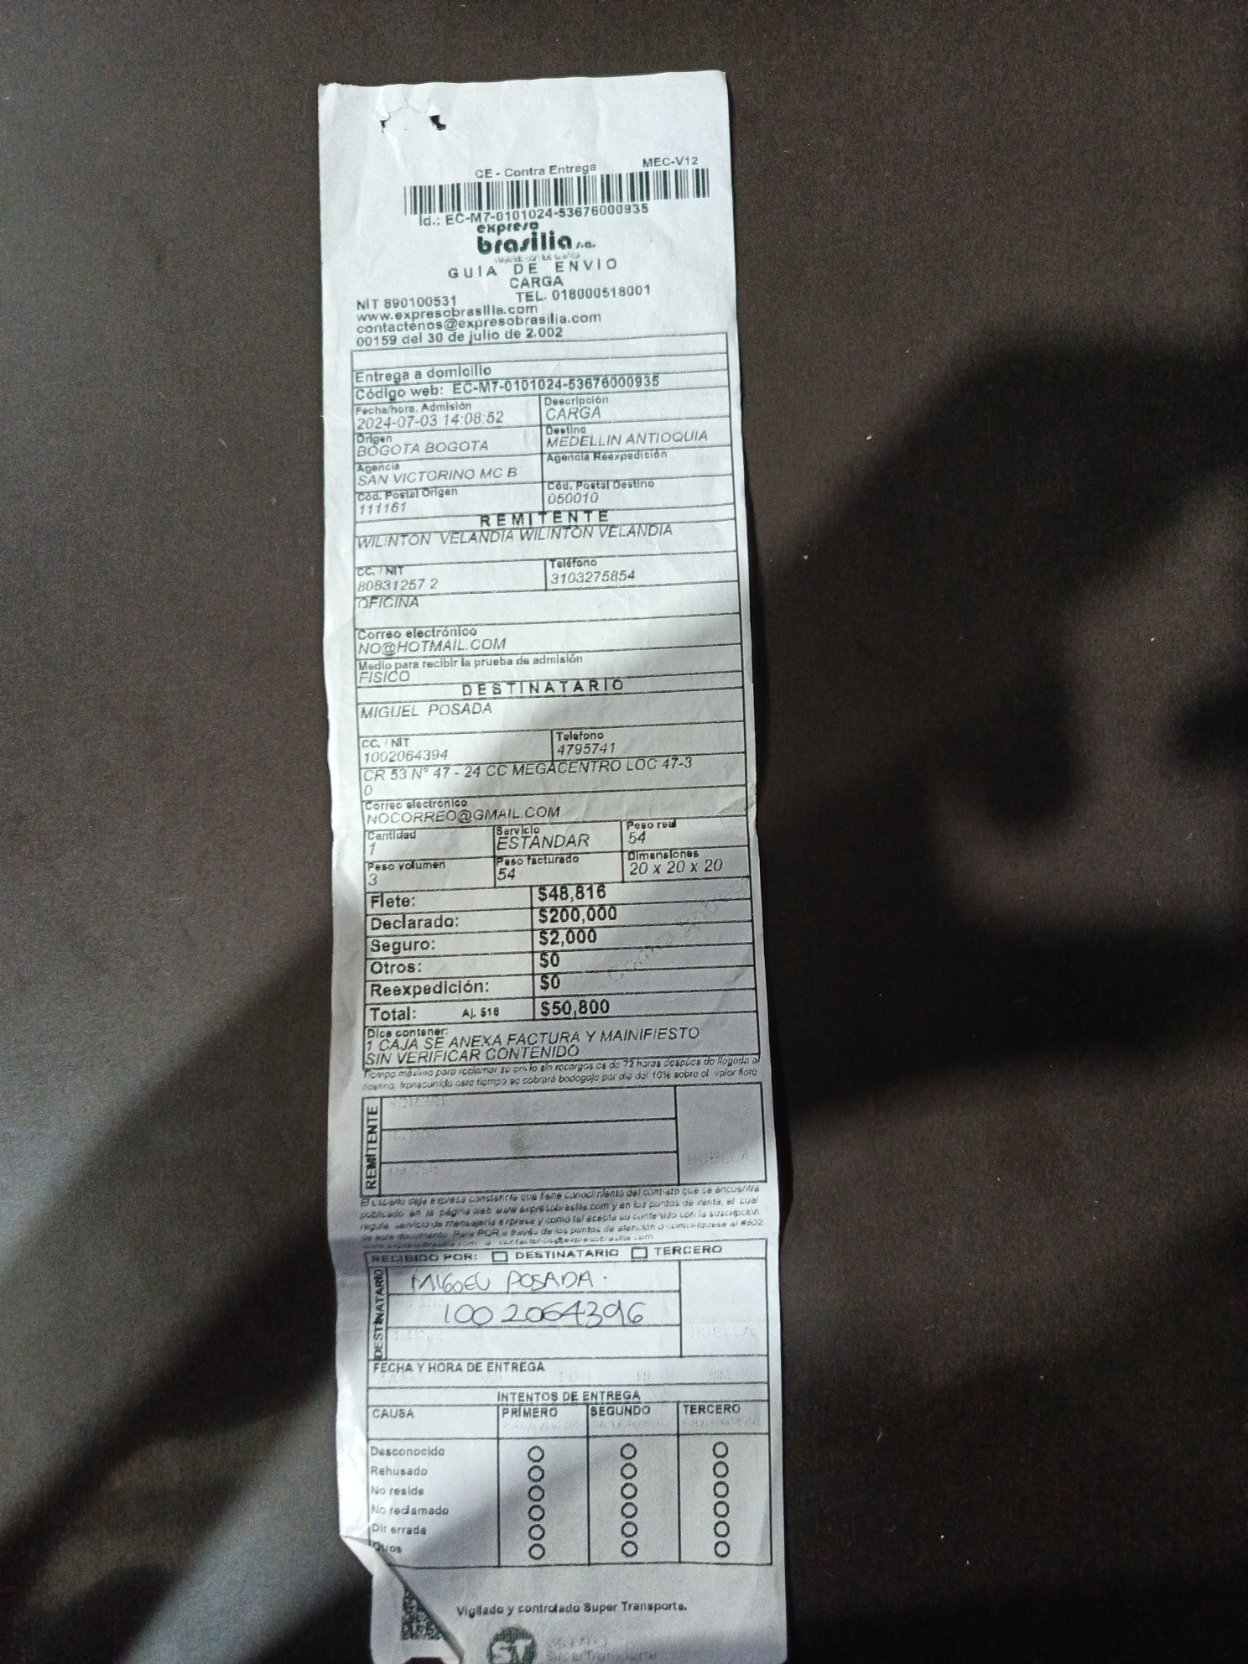 CE - Contra Entrega MEC-V12
Id.: EC-M7-0101024-53676000935
expreso
brasilia s.a.
GUIA DE ENVIO
CARGA
NIT 890100531 TEL. 018000518001
www.expresobrasilia.com
contactenos@expresobrasilia.com
00159 del 30 de julio de 2.002
Entrega a domicilio
Código web: EC-M7-0101024-53676000935
Fecha/hora. Admisión Descripción
2024-07-03 14:08:52 CARGA
Origen Destino
BOGOTA BOGOTA MEDELLIN ANTIOQUIA
Agencia Agencia Reexpedición
SAN VICTORINO MC B
Cód. Postal Origen Cód. Postal Destino
111161 050010
REMITENTE
WILINTON VELANDIA WILINTON VELANDIA
CC. / NIT Teléfono
80831257 2 3103275854
OFICINA
Correo electrónico
NO@HOTMAIL.COM
Medio para recibir la prueba de admisión
FISICO
DESTINATARIO
MIGUEL POSADA
CC. / NIT Teléfono
1002064394 4795741
CR 53 N° 47 - 24 CC MEGACENTRO LOC 47-3
0
Correo electrónico
NOCORREO@GMAIL.COM
Cantidad Servicio Peso real
1 ESTANDAR 54
Peso volumen Peso facturado Dimensiones
3 54 20 x 20 x 20
Flete: $48,816
Declarado: $200,000
Seguro: $2,000
Otros: $0
Reexpedición: $0
Total: Aj. $16 $50,800
Dice contener:
1 CAJA SE ANEXA FACTURA Y MAINIFIESTO
SIN VERIFICAR CONTENIDO
Tiempo máximo para reclamar su envío sin recargos es de 72 horas después de llegada al
destino, transcurrido este tiempo se cobrará bodegaje por día del 10% sobre el valor flete
REMITENTE
El usuario deja expresa constancia que tiene conocimiento del contrato que se encuentra
publicado en la página web www.expresobrasilia.com y en los puntos de venta, el cual
regula servicio de mensajería expresa y como tal acepta su contenido con la suscripción
de este documento. Para PQR, a través de los puntos de atención o comuníquese al #602,
www.expresobrasilia.com o contactenos@expresobrasilia.com
RECIBIDO POR: DESTINATARIO TERCERO
DESTINATARIO
MIGUEL POSADA.
1002064396
FECHA Y HORA DE ENTREGA
INTENTOS DE ENTREGA
CAUSA PRIMERO SEGUNDO TERCERO
Desconocido
Rehusado
No reside
No reclamado
Dir errada
Otros
Vigilado y controlado Super Transporte.
ST